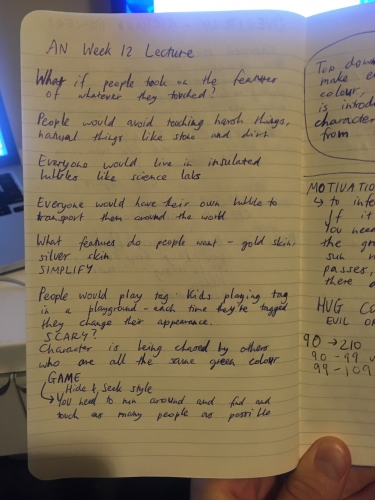 AN Week 12 Lecture
What if people took on the features
of whatever they touched?
People would avoid touching harsh things,
natural things like stone and dirt.
Everyone would live in insulated
bubbles like science labs
Everyone would have their own bubble to
transport them around the world
What features do people want - gold skin,
silver skin
SIMPLIFY
People would play tag. Kids playing tag
in a playground - each time they're tagged
they change their appearance.
SCARY?
Character is being chased by others
who are all the same green colour
GAME
Hide & Seek style
You need to run around and find and
touch as many people as possible
Top down
make e
colour,
is introd
character
from
MOTIVATIO
to infe
If it
You need
the gr
sun
passes,
there a
HUG CO
EVIL OR
90 → 210
90 - 99
99 - 109